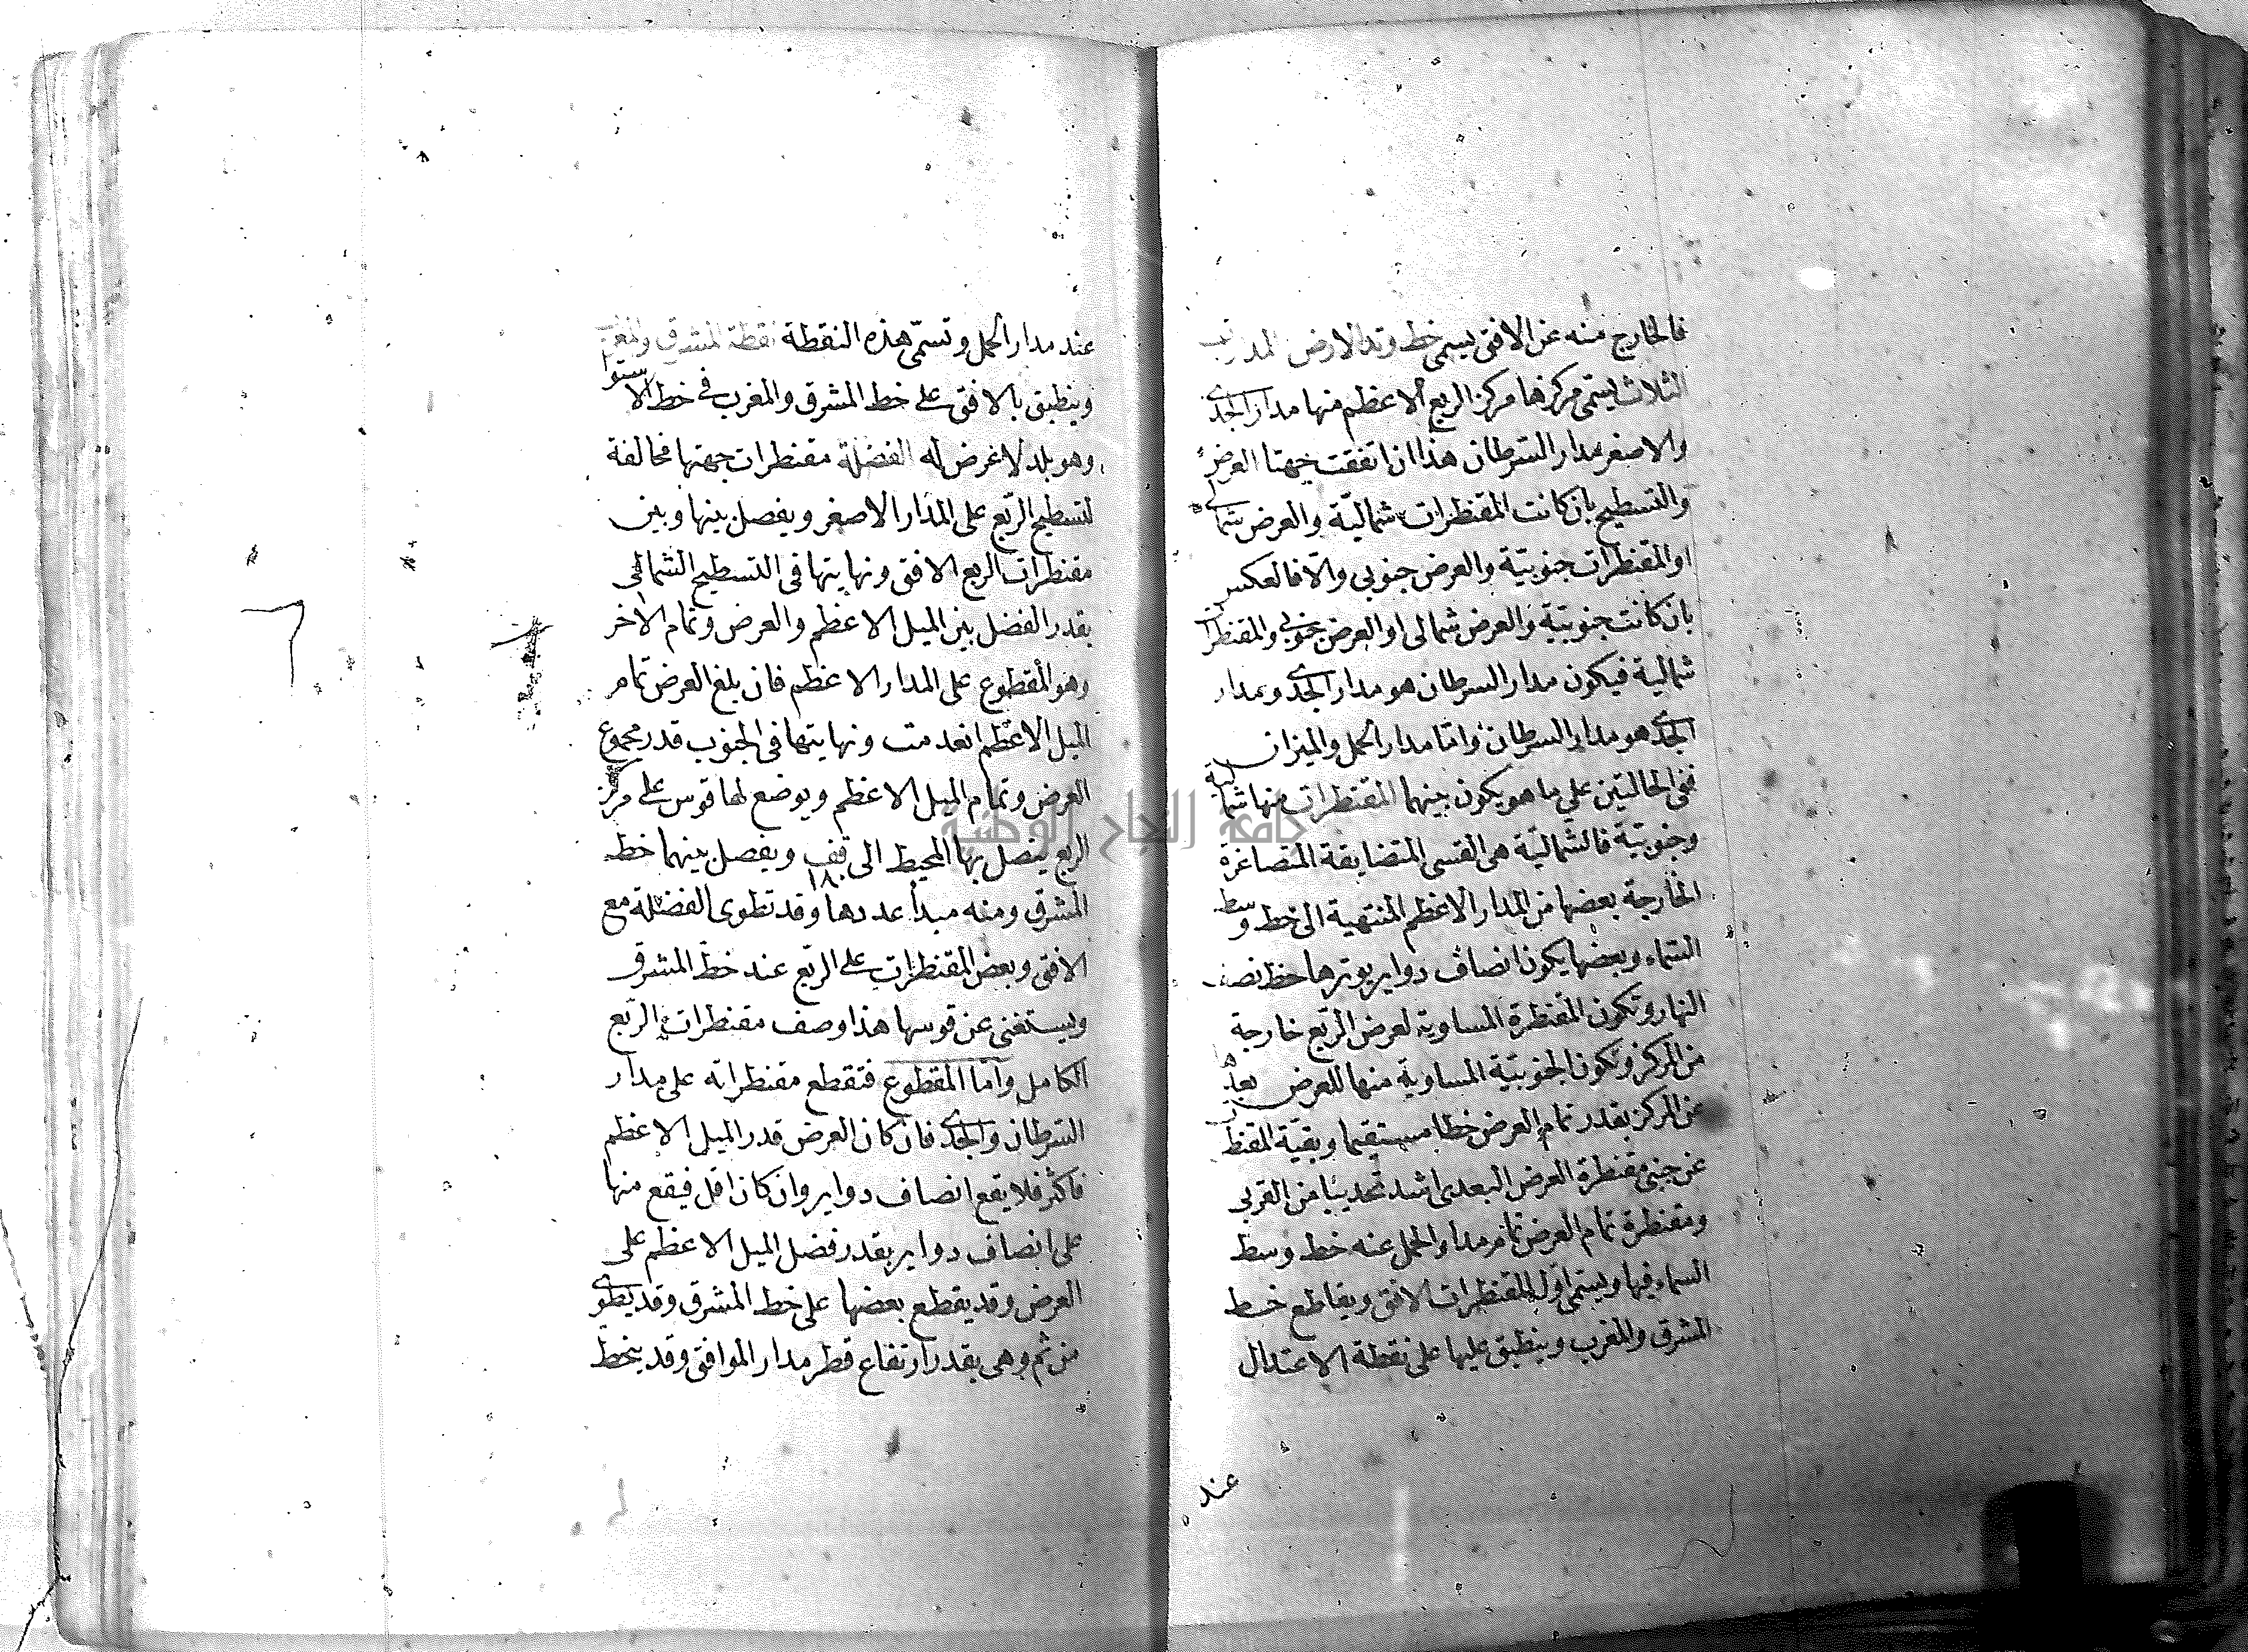 فالخارج منه عن الافق يسمى خط وتد الارض المدارات
الثلاث يسمى مركزها مركز الربع الاعظم منها مدار الجدى
والاصغر مدار السرطان هذا ان اتفقت جهتا العرض
والتسطيح بان كانت المقنطرات شمالية والعرض شمالى
او المقنطرات جنوبية والعرض جنوبي والا فالعكس
بان كانت جنوبية والعرض شمالى او العرض جنوبي والمقنطرات
شمالية فيكون مدار السرطان هو مدار الجدى ومدار
الجدى هو مدار السرطان واما مدار الحمل والميزان
ففى الحالتين علي ما هو يكون بينهما المقنطرات منها شمالية
وجنوبية فالشمالية هى القسى المتضايقة المتصاغرة
الخارجة بعضها من المدار الاعظم المنتهية الى خط وسط
السماء وبعضها يكون انصاف دواير يوترها خط نصف
النهار وتكون المقنطرة المساوية لعرض الربع خارجة
من المركز وتكون الجنوبية المساوية منها للعرض بعدها
عن المركز بقدر تمام العرض خطا مستقيما وبقية المقنطرات
عن جنبى مقنطرة العرض البعدى اشد تحديبا من القربى
ومقنطرة تمام العرض تماس مدار الحمل عنه خط وسط
السماء فيها ويسمى اول المقنطرات الافق ويقاطع خط
المشرق والمغرب وينطبق عليها على نقطة الاعتدال
عند
عند مدار الحمل وتسمى هذه النقطة نقطة المشرق والمغرب
وينطبق بالافق على خط المشرق والمغرب فى خط الاستوا
وهو بلد لا عرض له الفضلة مقنطرات جهتها مخالفة
لتسطيح الربع على المدار الاصغر ويفصل بينها وبين
مقنطرات الربع الافق ونهايتها فى التسطيح الشمالى
بقدر الفضل بين الميل الاعظم والعرض وتمام الاخر
وهو المقطوع على المدار الاعظم فان بلغ العرض تمام
الميل الاعظم انعدمت ونهايتها فى الجنوب قدر مجموع
العرض وتمام الميل الاعظم ويوضع لها قوس على مركز
الربع يتصل بها المحيط الى قف ١٨٠ ويفصل بينهما خط
المشرق ومنه مبدأ عددها وقد تطوى الفضلة مع
الافق وبعض المقنطرات على الربع عند خط المشرق
ويستغنى عن قوسها هذا وصف مقنطرات الربع
الكامل واما المقطوع فتقطع مقنطراته على مدار
السرطان والجدى فان كان العرض قدر الميل الاعظم
فاكثر فلا يقع انصاف دواير وان كان اقل فيقع منها
على انصاف دواير بقدر فضل الميل الاعظم على
العرض وقد يقطع بعضها على خط المشرق وقد يطوى
من ثم وهى بقدر ارتفاع قطر مدار الموافق وقد يخط
جامعة النجاح الوطنية